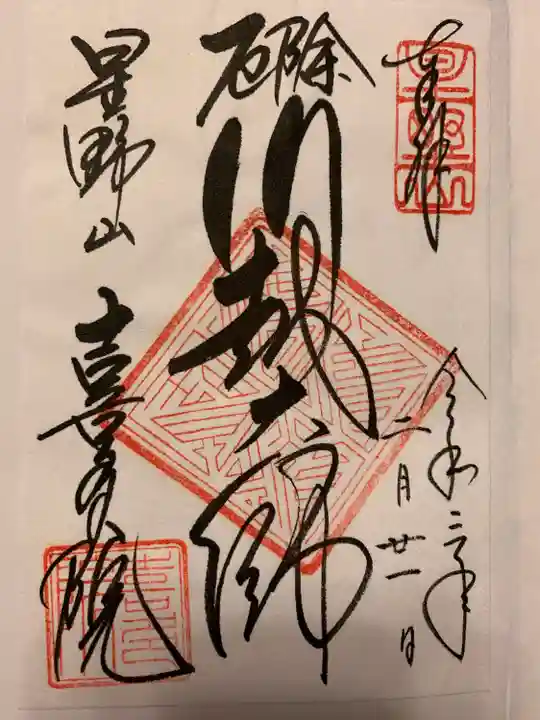 奉拝
令和二年
二月廿一日
厄除
川越大師
星野山
喜多院